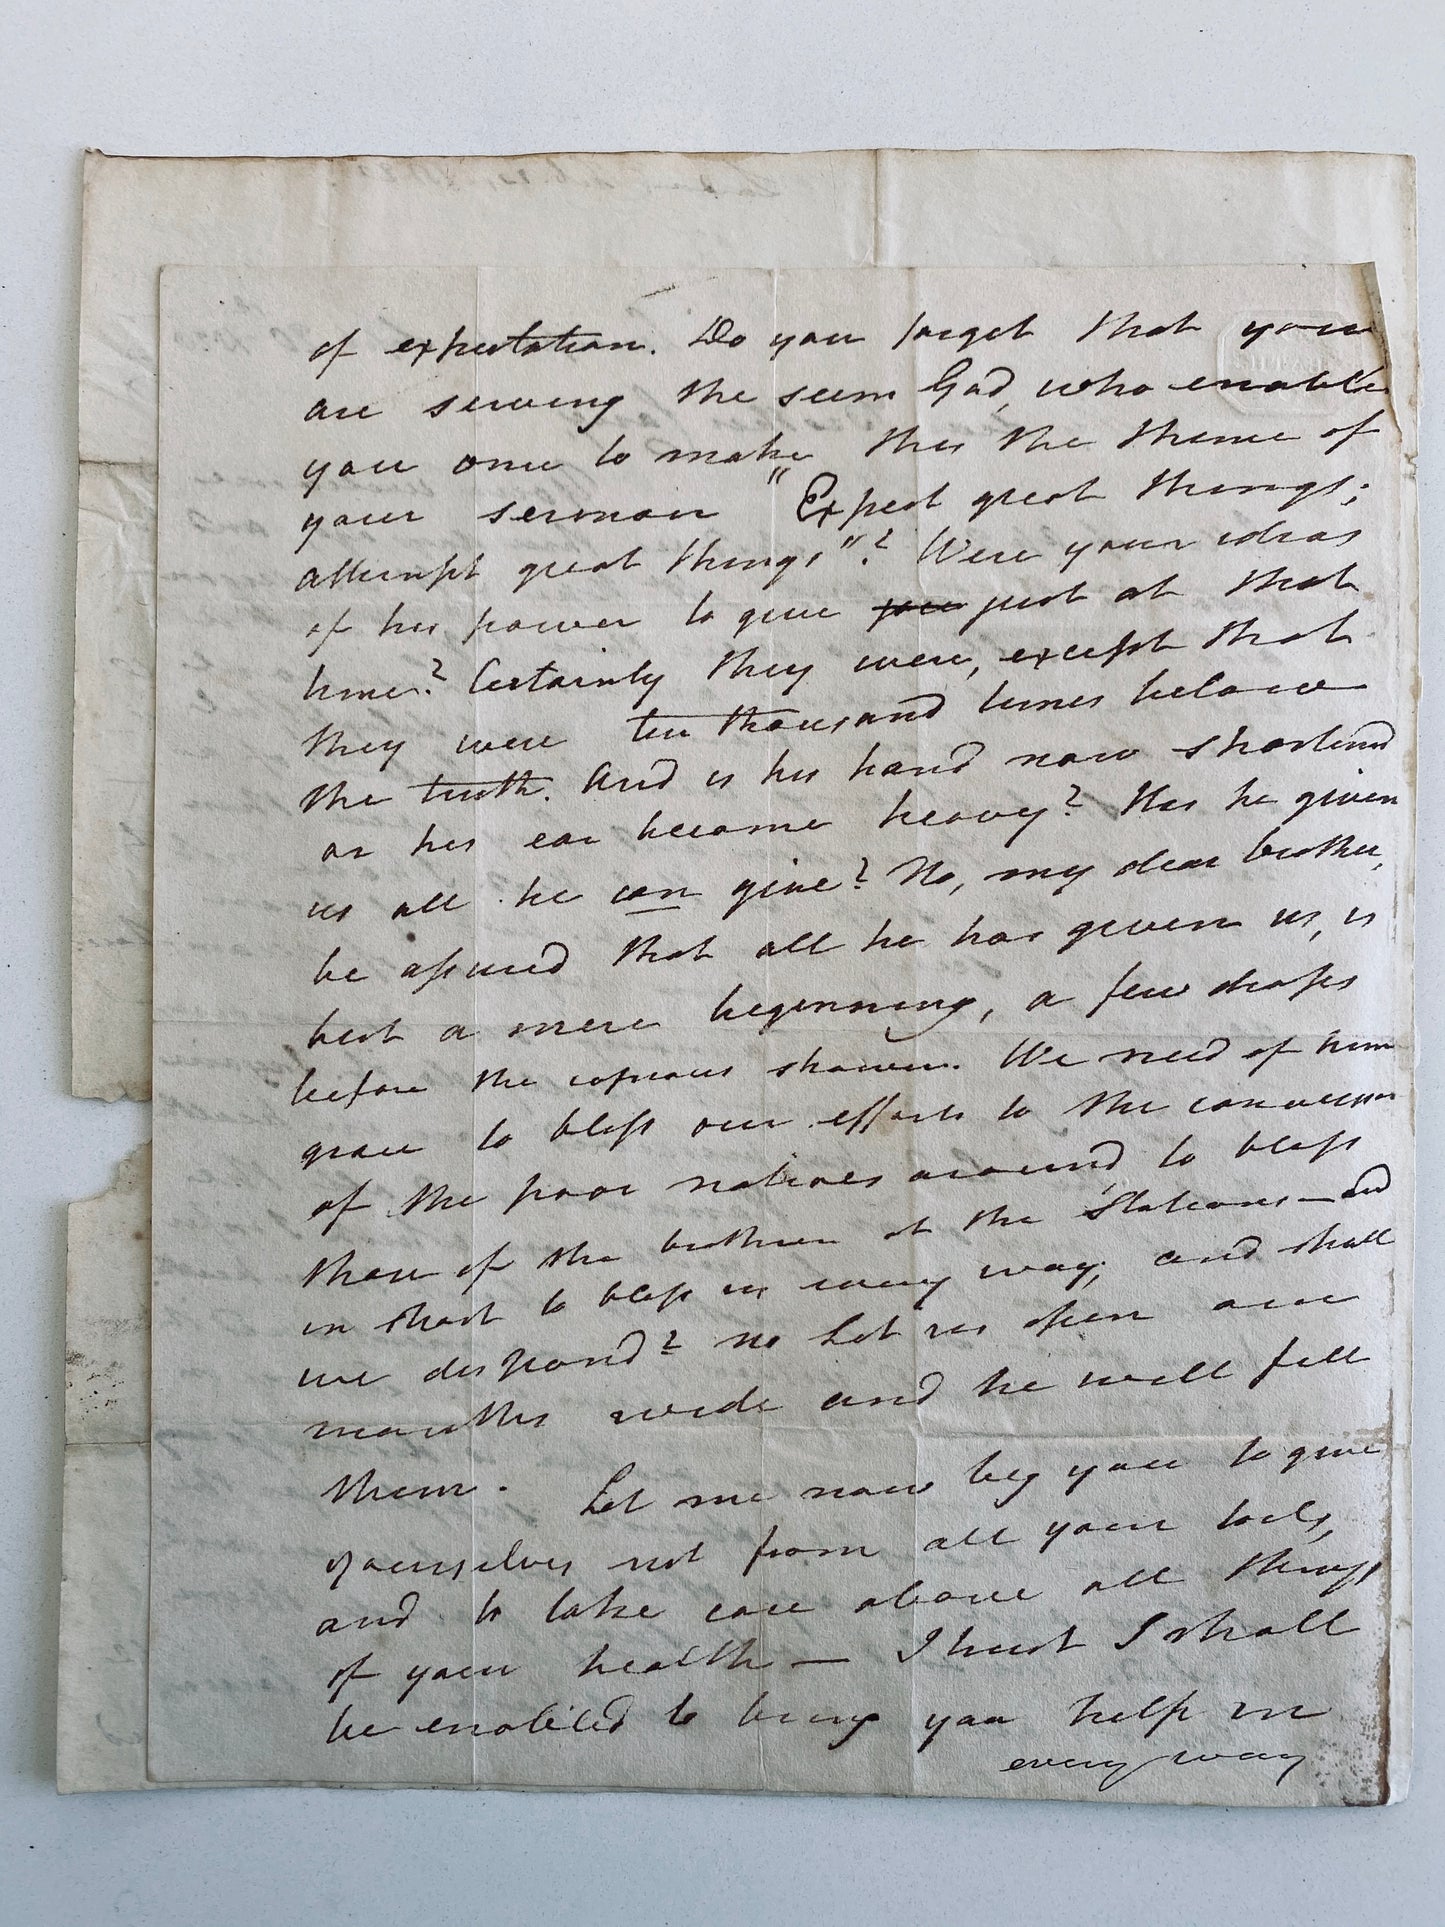 of expectation. Do you forget that you
are serving the seem God, who enabled
you once to make this the theme of
your sermon "Expect great things;
attempt great things"? Were your ideas
of his power to give you just at that
time? Certainly they were, except that
they were ten thousand times below
the truth. And is his hand now shortened
or his ear become heavy? Has he given
us all he can give? No, my dear brother,
be assured that all he has given us, is
but a mere beginning, a few drops
before the copious shower. We need of him
grace to bless our efforts to the conversion
of the poor natives around to bless
those of the brethren at the Stations—and
in short to bless us every way; and shall
we despond? no Let us open our
mouths wide and he will fill
them. Let me now beg you to give
yourselves rest from all your toils,
and to take care above all things
of your health — I trust I shall
be enabled to bring you help in
every way